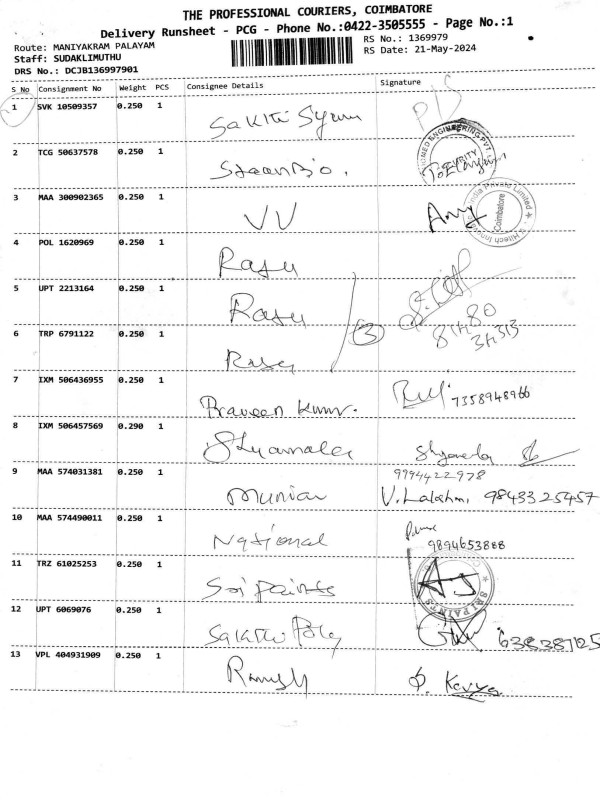 THE PROFESSIONAL COURIERS, COIMBATORE
Delivery Runsheet - PCG - Phone No.:0422-3505555 - Page No.:1
Route: MANIYAKRAM PALAYAM
RS No.: 1369979
Staff: SUDAKLIMUTHU
RS Date: 21-May-2024
DRS No.: DCJB136997901
S No Consignment No Weight PCS Consignee Details Signature
1 SVK 10509357 0.250 1 Sakthi
2 TCG 50637578 0.250 1
3 MAA 300902365 0.250 1 VV
India Private Limited
Coimbatore
4 POL 1620969 0.250 1 Raju
5 UPT 2213164 0.250 1 Raju 3
6 TRP 6791122 0.250 1
81480
34313
7 IXM 506436955 0.250 1 Praveen Kumar. 7358948966
8 IXM 506457569 0.290 1 Shyamala
9 MAA 574031381 0.250 1 9994422978
V. Lakshmi, 98433 25457
10 MAA 574490011 0.250 1 National 9894653888
11 TRZ 61025253 0.250 1 Sri paints
SRI PAINTS
12 UPT 6069076 0.250 1 Sakthi
13 VPL 404931909 0.250 1 Ramesh Kavya